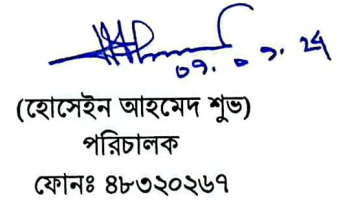 ০৭. ০৭. ২৫
(হোসেইন আহমেদ শুভ)
পরিচালক
ফোনঃ ৪৮৩২০২৬৭